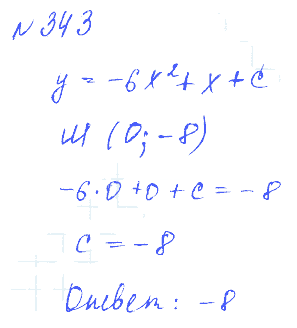 № 343
y = -6x² + x + c
M (0; -8)
-6·0 + 0 + c = -8
c = -8
Ответ: -8